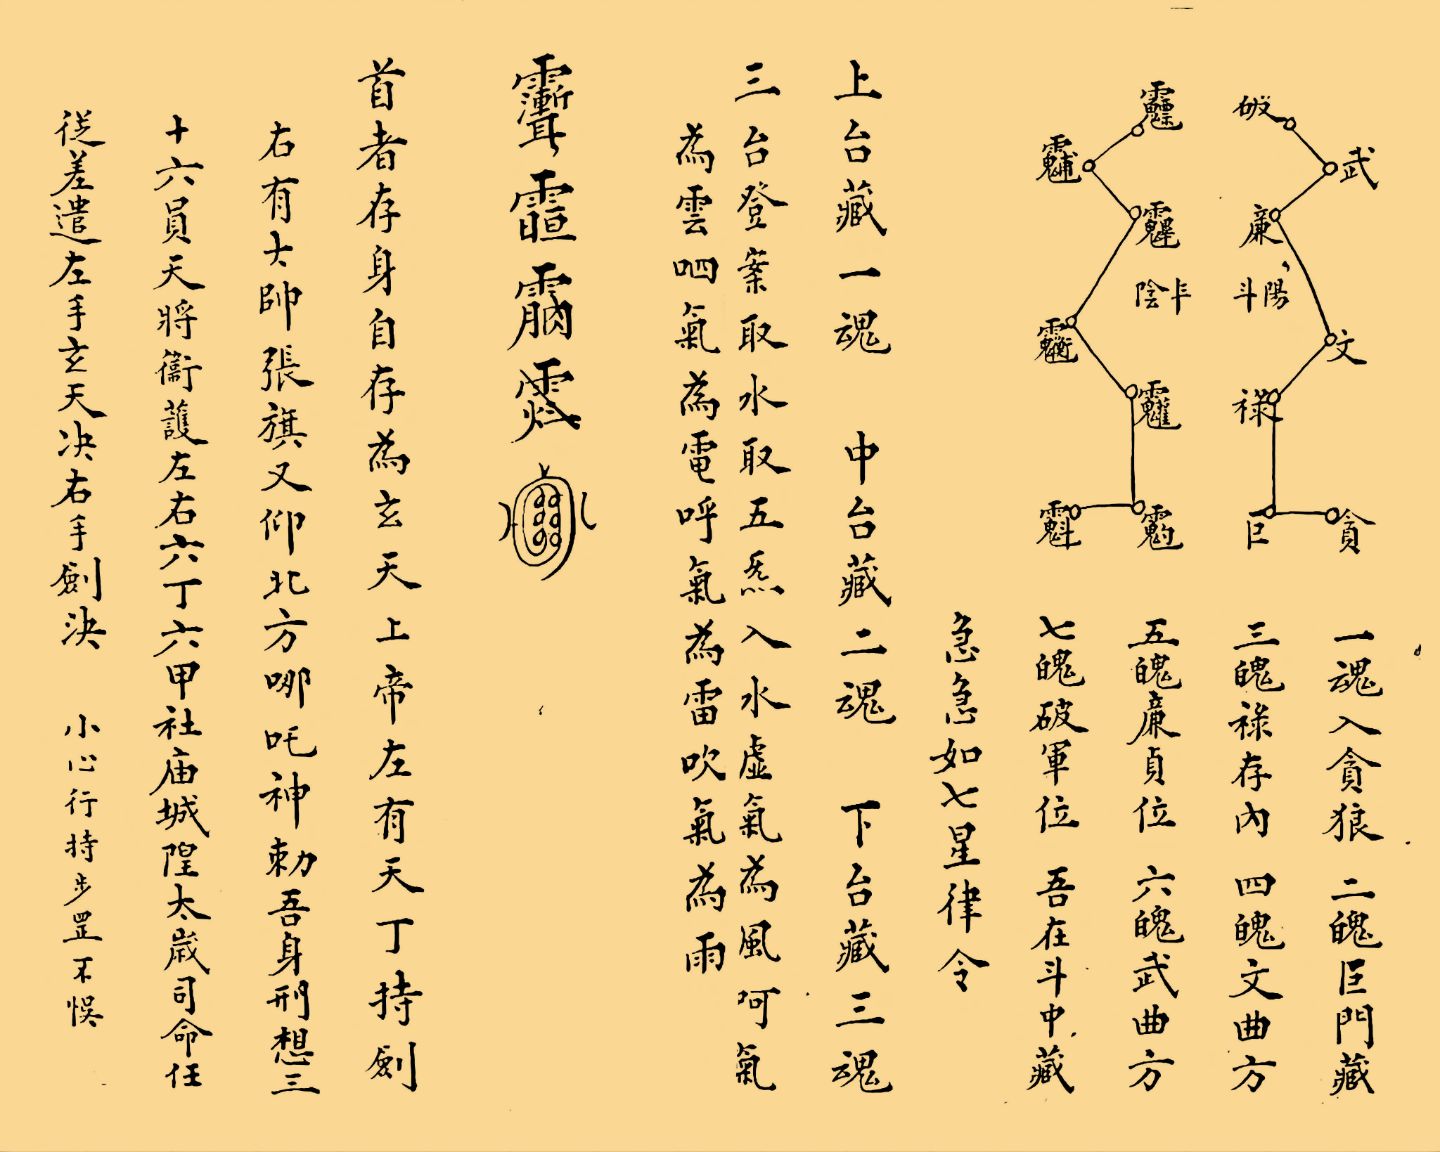 破
武
廉
陽斗
文
祿
巨
貪
陰
一魂入貪狼 二魄巨門藏
三魄祿存內 四魄文曲方
五魄廉貞位 六魄武曲方
七魄破軍位 吾在斗中藏
急急如七星律令
上台藏一魂 中台藏二魂 下台藏三魂
三台登案取水取五炁入水虛氣為風呵氣
為雲呬氣為電呼氣為雷吹氣為雨
首者存身自存為玄天上帝左有天丁持劍
右有大帥張旗又仰北方哪吒神勅吾身刑想三
十六員天將衞護左右六丁六甲社庙城隍太歲司命任
從差遣左手玄天决右手劍決 小心行持步罡不悞